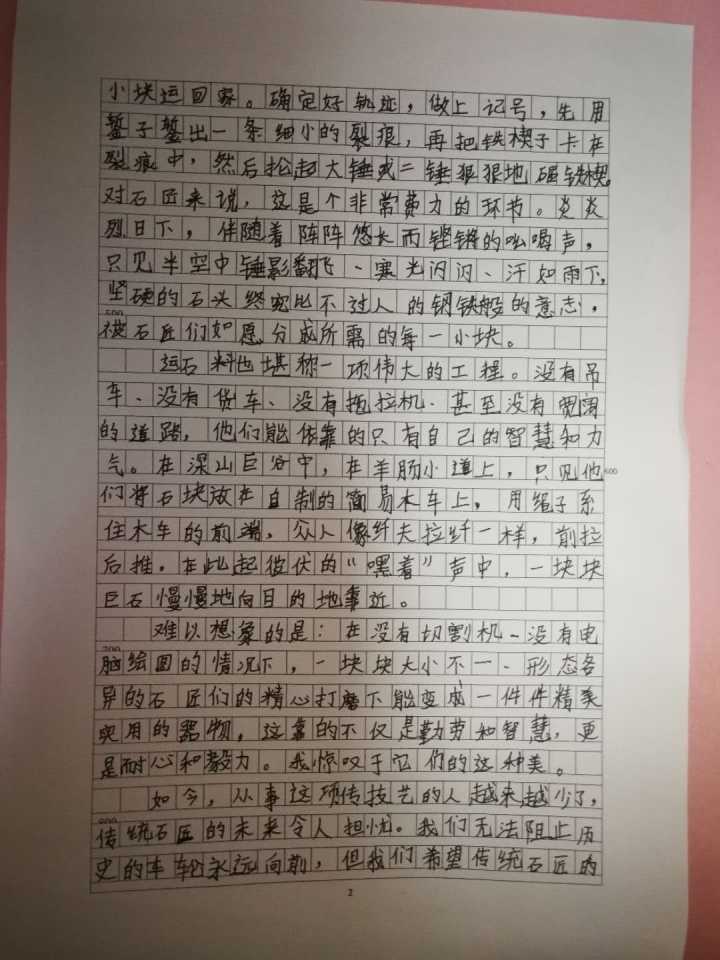 小块运回家。确定好轨迹，做上记号，先用
錾子錾出一条细小的裂痕，再把铁楔子卡在
裂痕中，然后抡起大锤或二锤狠狠地砸铁楔。
对石匠来说，这是个非常费力的环节。炎炎
烈日下，伴随着阵阵悠长而铿锵的吆喝声，
只见半空中锤影翻飞、寒光闪闪、汗如雨下，
坚硬的石头终究比不过人的钢铁般的意志，
500
被石匠们如愿分成所需的每一小块。
运石料也堪称一项伟大的工程。没有吊
车、没有货车、没有拖拉机、甚至没有宽阔
的道路，他们能依靠的只有自己的智慧和力
气。在深山巨谷中，在羊肠小道上，只见他
600
们将石块放在自制的简易木车上，用绳子系
住木车的前端，众人像纤夫拉纤一样，前拉
后推。在此起彼伏的“嘿着”声中，一块块
巨石慢慢地向目的地靠近。
难以想象的是：在没有切割机、没有电
700
脑绘图的情况下，一块块大小不一、形态各
异的石匠们的精心打磨下能变成一件件精美
实用的器物，这靠的不仅是勤劳和智慧，更
是耐心和毅力。我惊叹于它们的这种美。
如今，从事这项传技艺的人越来越少了，
800
传统石匠的未来令人担忧。我们无法阻止历
史的车轮永远向前，但我们希望传统石匠的
2